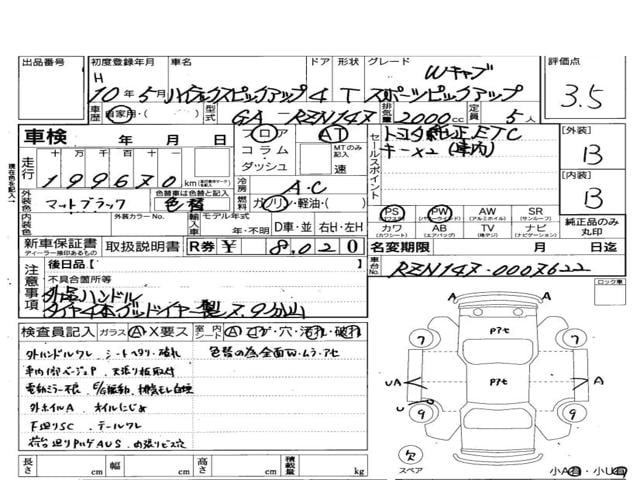 出品番号 初度登録年月 車名 ドア 形状 グレード 評価点
H Wキャブ
10年5月 ハイラックスピックアップ 4 T スポーツピックアップ 3.5
車歴 自家用・( ) 型式 GA-RZN147 排気量 2000cc 定員 5人
車検 年 月 日 フロア AT トヨタ純正ETC [外装]
コラム MTのみ記入 キーX2(車内) B
走行 十万千百十一 ダッシュ 速 セールスポイント
199670 km 冷房 A・C [内装]
外装色 マットブラック 色替車は色替と記入 色替 燃料 ガソリン・軽油・( ) B
PS PW AW SR 純正品のみ丸印
(パワステ) (パワーウィンドウ) (アルミホイル) (サンルーフ)
内装色 外装カラーNo. 輸入車 モデル年式 年・不明 D車・並 右H・左H カワ AB TV ナビ
(カワシート) (エアバッグ) (地デジ) (ナビゲーション)
新車保証書 取扱説明書 R券 ¥ 8,020 名変期限 月 日迄
ディーラー捺印があるもの
注意事項 後日品[ ] 車台No. RZN147-0007622
不具合箇所等 ロック車
外品ハンドル
検査員記入 ガラス A X要ス 室内シート A コゲ・穴・汚れ・破れ Pアセ
外ハンドルワレ シートヘタリ・破れ 色替の為全面W・ムラ・アセ
オイルにじみ UA Pアセ A
外ホイルA
下廻りSC テールワレ
7 7
9 9
長さ cm 幅 cm 高さ cm 積載量 kg 欠 スペア 小A有・小U有